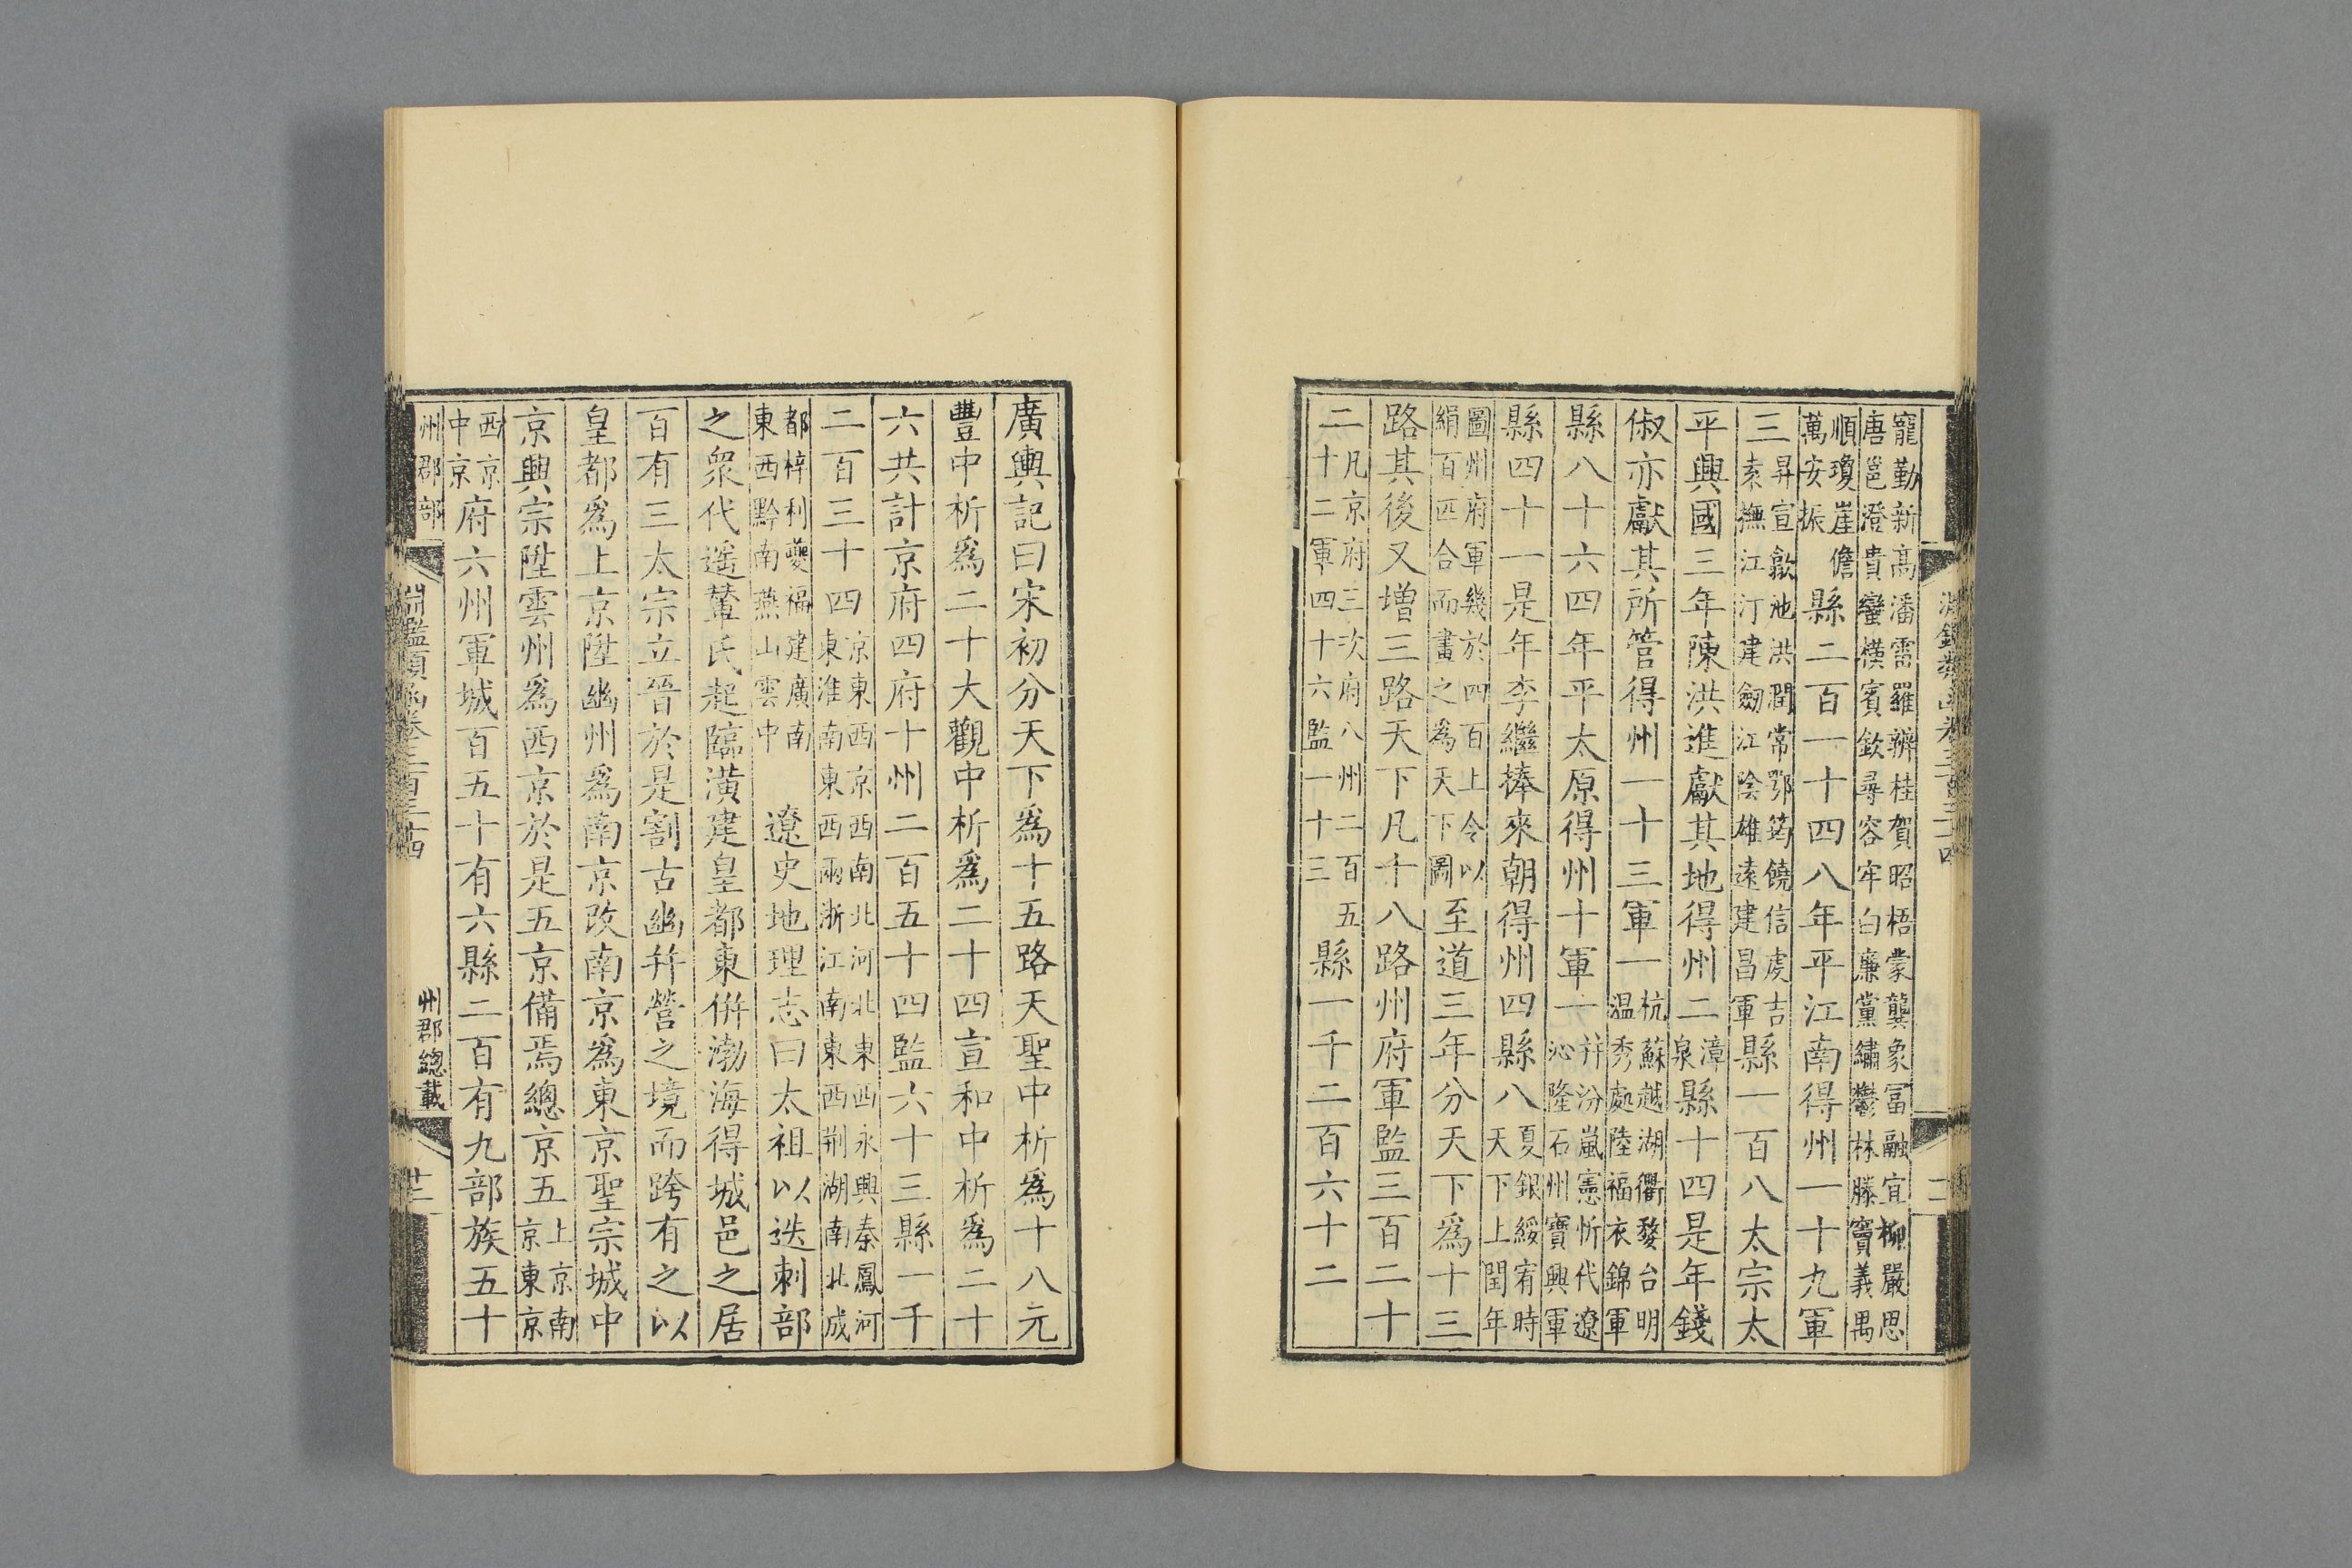 寵勤新高潘雷羅辨桂賀昭梧蒙龔象富融宜柳嚴思
唐邕澄貴蠻橫賓欽尋容牢白廉黨繡鬱林滕竇義禺
順瓊崖儋
萬安振
縣二百一十四八年平江南得州一十九軍
三
昇宣歙池洪潤常鄂筠饒信虔吉
袁撫江汀建劒江陰雄遠建昌軍
縣一百八太宗太
平興國三年陳洪進獻其地得州二
漳
泉
縣十四是年錢
俶亦獻其所管得州一十三軍一
杭蘇越湖衢婺台明
温秀處陸福衣錦軍
縣八十六四年平太原得州十軍一
并汾嵐憲忻代遼
沁隆石州寶興軍
縣四十一是年李繼捧來朝得州四縣八
夏銀綏宥時
天下上閏年
圖州府軍幾於四百上令以
絹百匹合而畫之為天下圖
至道三年分天下爲十三
路其後又增三路天下凡十八路州府軍監三百二十
二
凡京府三次府八州二百五
十二軍四十六監一十三
縣一千二百六十二
廣輿記曰宋初分天下爲十五路天聖中析爲十八元
豐中析爲二十大觀中析爲二十四宣和中析爲二十
六共計京府四府十州二百五十四監六十三縣一千
二百三十四
京東西京西南北河北東西永興秦鳳河
東淮南東西兩浙江南東西荆湖南北成
都梓利夔福建廣南
東西黔南燕山雲中
遼史地理志曰太祖以迭刺部
之衆代遥輦氏起臨潢建皇都東併渤海得城邑之居
百有三太宗立晉於是割古幽并營之境而跨有之以
皇都爲上京陞幽州爲南京改南京爲東京聖宗城中
京興宗陞雲州爲西京於是五京備焉總京五
上京南
京東京
西京
中京
府六州軍城百五十有六縣二百有九部族五十
州郡部
州郡總載